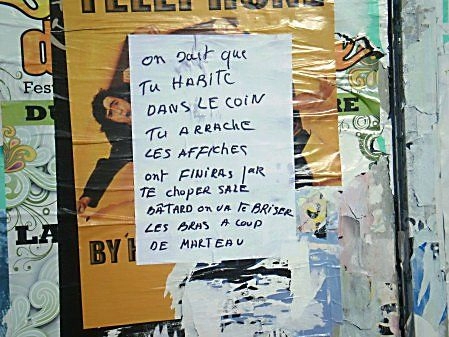 TELEPHONE
Fest
DU
RE
LA
BY
on sait que
TU HABITE
DANS LE COIN
TU ARRACHE
LES AFFICHES
ont FINIRAS PAR
TE CHOPER SALE
BÂTARD on VA TE BRISER
LES BRAS A COUP
DE MARTEAU